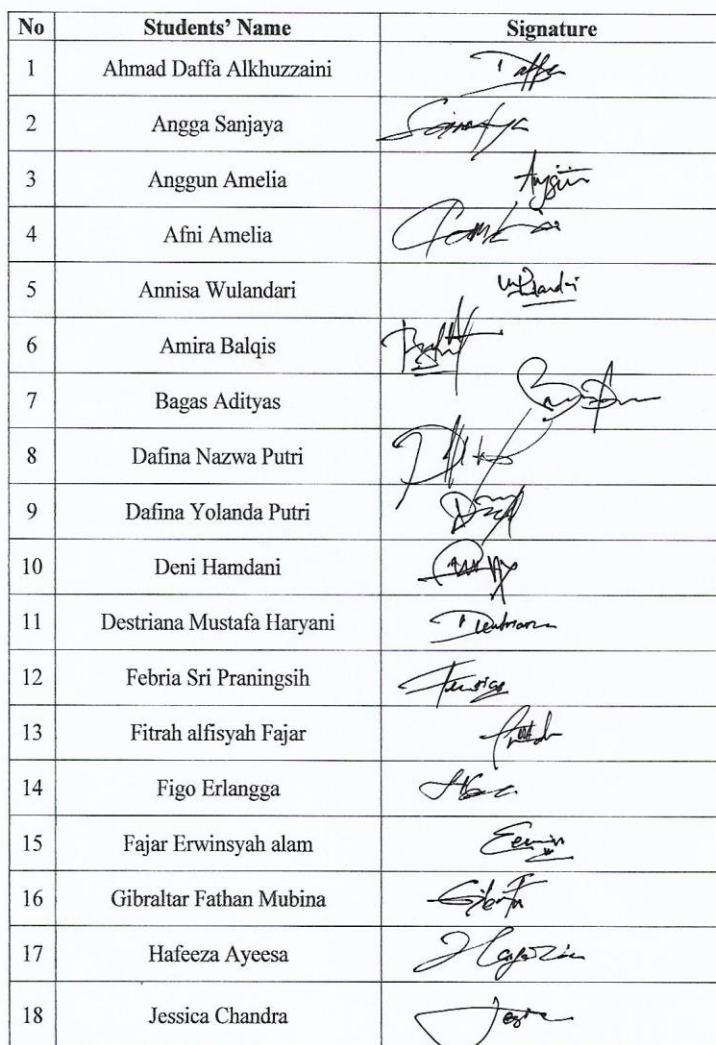 No Students' Name Signature
1 Ahmad Daffa Alkhuzzaini Daffa
2 Angga Sanjaya
3 Anggun Amelia
4 Afni Amelia
5 Annisa Wulandari
6 Amira Balqis
7 Bagas Adityas
8 Dafina Nazwa Putri
9 Dafina Yolanda Putri
10 Deni Hamdani
11 Destriana Mustafa Haryani
12 Febria Sri Praningsih
13 Fitrah alfisyah Fajar
14 Figo Erlangga
15 Fajar Erwinsyah alam
16 Gibraltar Fathan Mubina
17 Hafeeza Ayeesa
18 Jessica Chandra